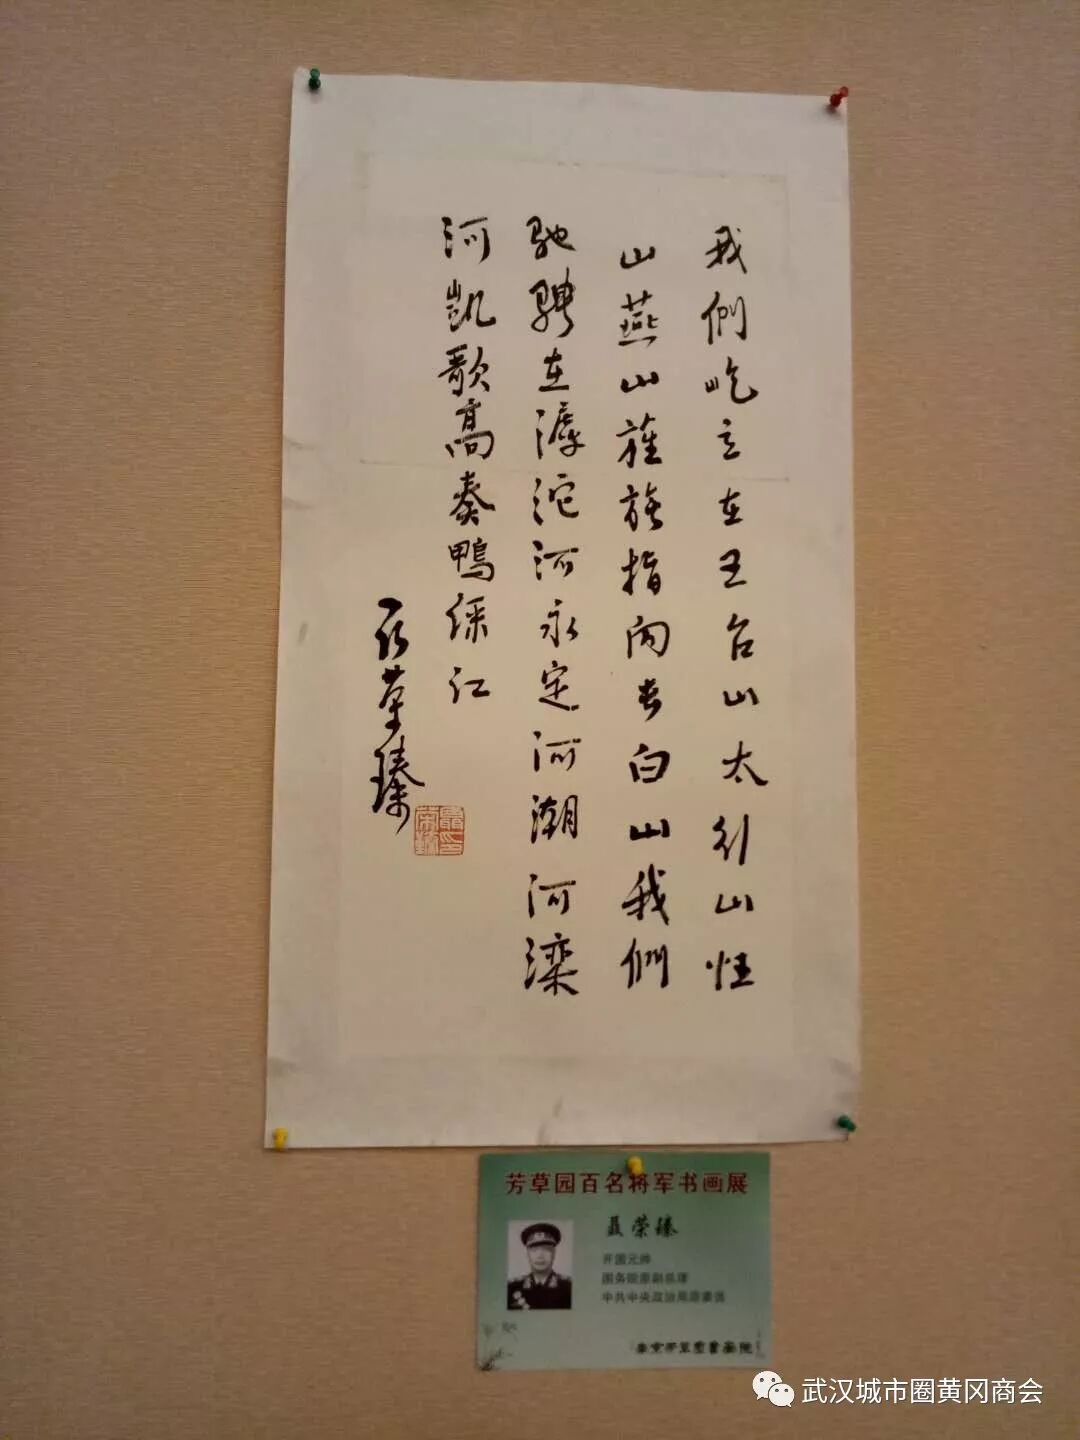 我們屹立在五台山太行山恒
山燕山旌旗指向長白山我們
馳騁在滹沱河永定河潮河灤
河凱歌高奏鴨綠江
聂荣臻
芳草园百名将军书画展
聂荣臻
开国元帅
国务院原副总理
中共中央政治局原委员
武汉城市圈黄冈商会